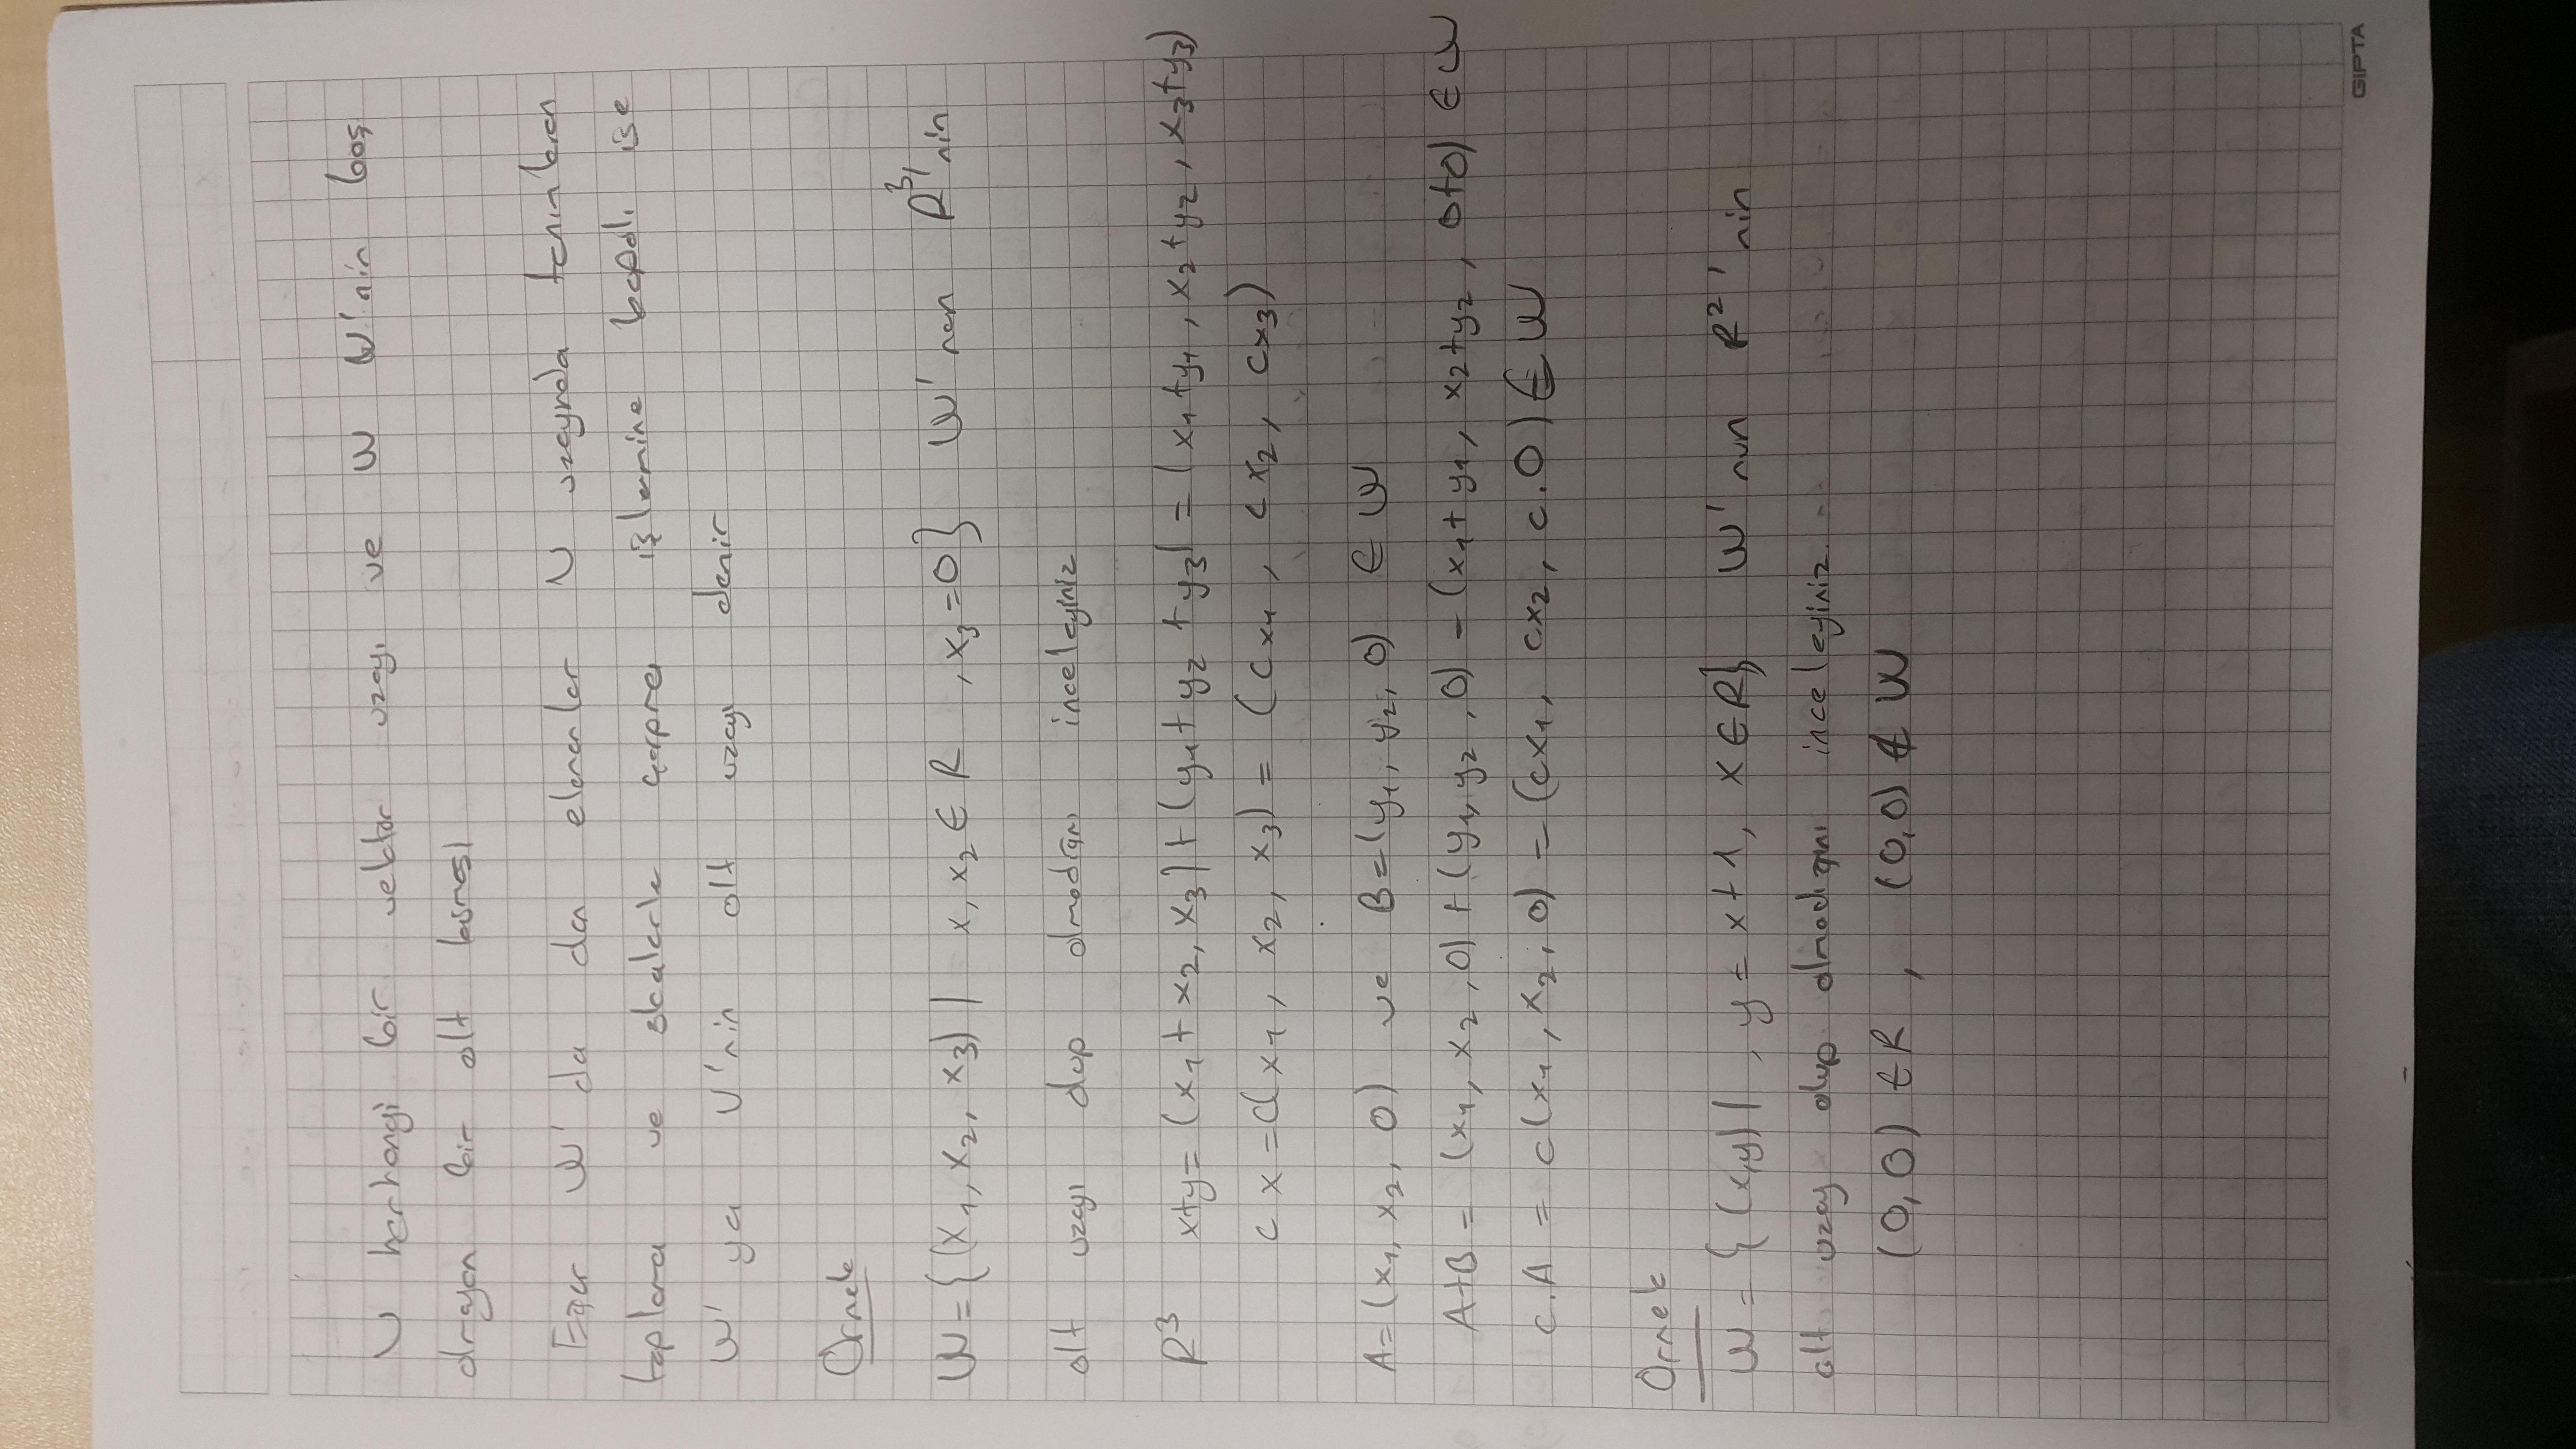 V herhangi bir vektör uzayı ve W V'nin boş
olmayan bir alt kümesi
Eğer W'da da elemanlar V uzayında tanımlanan
toplama ve skalerle çarpma işlemine kapalı ise
W'ya V'nin alt uzayı denir
Örnek
W={(x1, x2, x3) | x, x2 ∈ R , x3=0} W'nun R³'nin
alt uzayı olup olmadığını inceleyiniz
R³ x+y= (x1 + x2, x3) + (y1 + y2 + y3) = (x1+y1, x2+y2, x3+y3)
cx = c(x1, x2, x3) = (cx1, cx2, cx3)
A=(x1, x2, 0) ve B=(y1, y2, 0) ∈ W
A+B = (x1, x2, 0) + (y1, y2, 0) = (x1+y1, x2+y2, 0+0) ∈ W
c.A = c(x1, x2, 0) = (cx1, cx2, c.0) ∈ W
Örnek
W = {(x,y) | , y = x+1, x ∈ R} W'nun R²'nin
alt uzay olup olmadığını inceleyiniz.
(0,0) ∈ R , (0,0) ∉ W
GIPTA